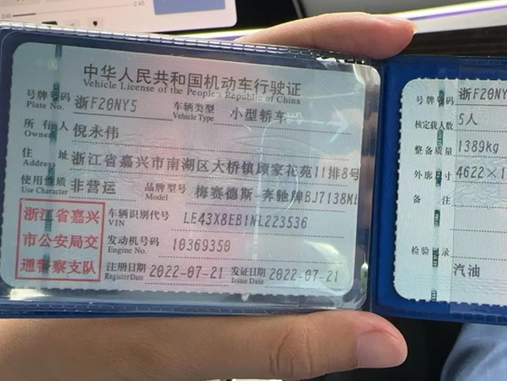 中华人民共和国机动车行驶证
Vehicle License of the People's Republic of China
号牌号码 浙F20NY5 车辆类型 小型轿车
Plate No. Vehicle Type
所有人 倪永伟
Owner
住址 浙江省嘉兴市南湖区大桥镇顾家花苑11排8号
Address
使用性质 非营运 品牌型号 梅赛德斯-奔驰牌BJ7138ME
Use Character Model
浙江省嘉兴
市公安局交
通警察支队
车辆识别代号 LE43X8EB1NL223536
VIN
发动机号码 10369350
Engine No.
注册日期 2022-07-21 发证日期 2022-07-21
Register Date Issue Date
号牌号码 浙F20NY
核定载人数 5人
整备质量 1389kg
外廓尺寸 4622×1
备注
检验记录
汽油